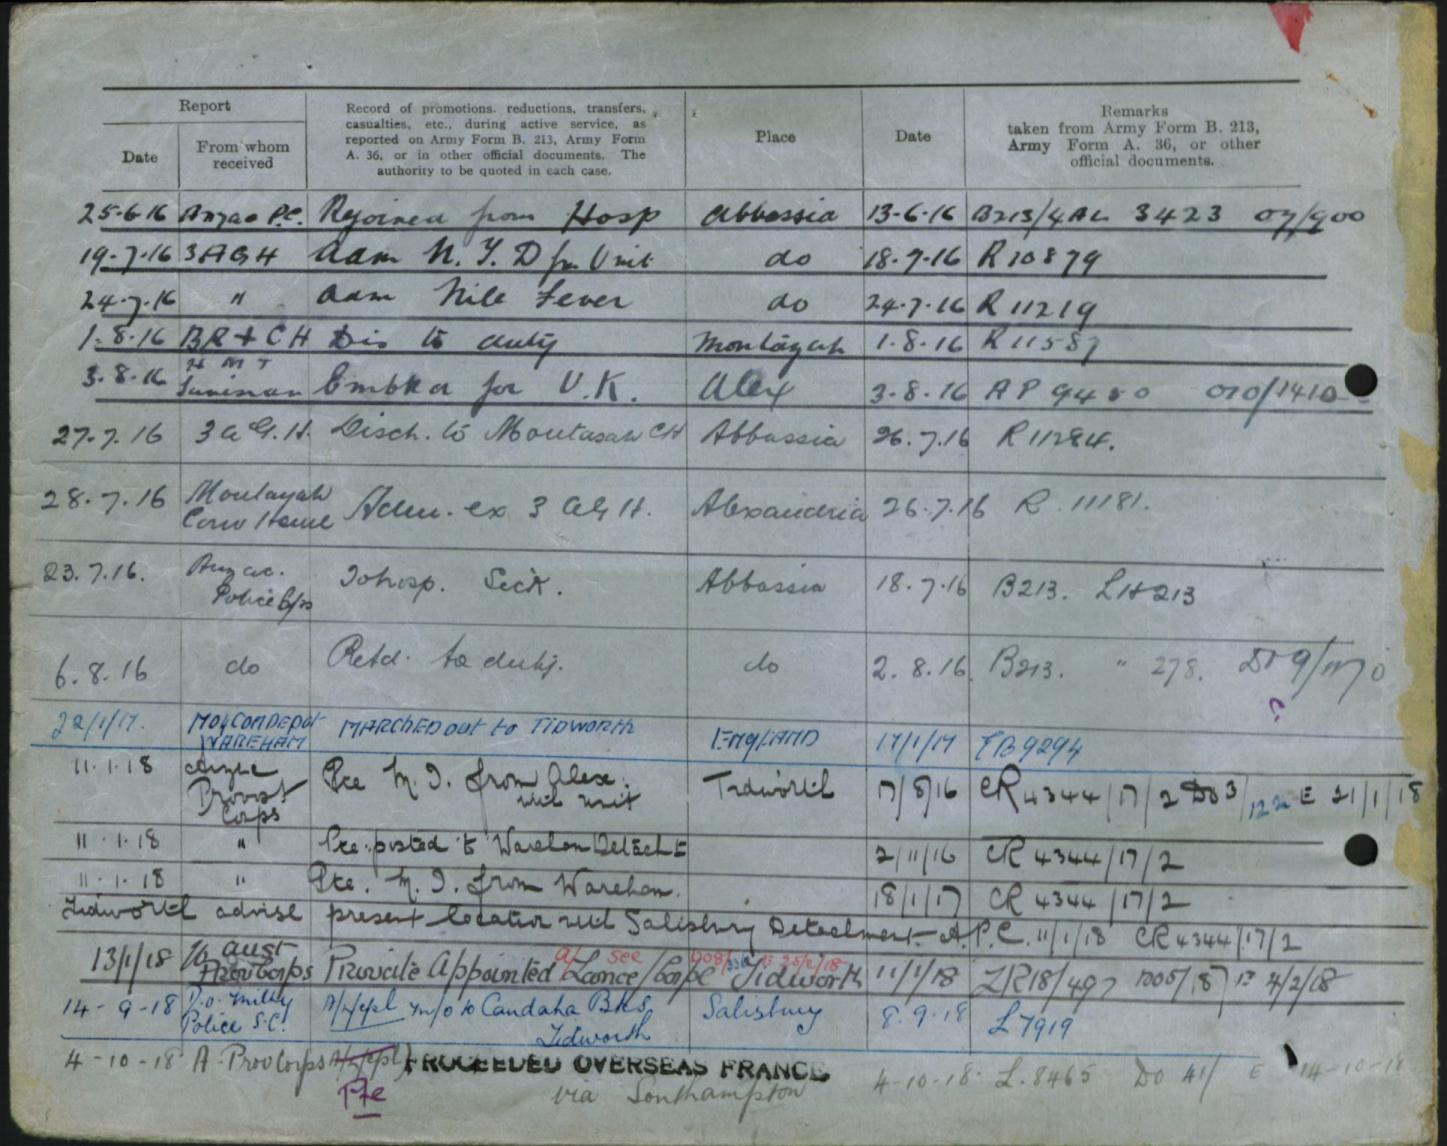 Report
Date
From whom received
Record of promotions, reductions, transfers, casualties, etc., during active service, as reported on Army Form B. 213, Army Form A. 36, or in other official documents. The authority to be quoted in each case.
Place
Date
Remarks taken from Army Form B. 213, Army Form A. 36, or other official documents.
25-6-16 Anzac P.C. Rejoined from Hosp Abbassia 13-6-16 B213/4AL 3423
19-7-16 3AGH Adm N.Y.D fm Unit do 18-7-16 R10879
24-7-16 " Adm Nile Fever do 24-7-16 R11219
1-8-16 BR+CH Dis to duty Montazah 1-8-16 R11587
3-8-16 H M T Embkd for U.K. Alex 3-8-16 AP
27.7.16 3 A G.H. Disch. to Montazah CH Abbassia 26.7.16 R11284.
28.7.16 Montazah Conv Home Adm. ex 3 AG H. Alexandria 26.7.16 R. 11181.
23.7.16. Anzac. Police Cps To hosp. Sick. Abbassia 18.7.16 B213. LH213
6.8.16 do Retd. to duty. do 2.8.16. B213. " 278.
22/1/17. No 4 COM DEPOT WAREHAM MARCHED out to TIDWORTH ENGLAND 17/1/17 9294
11.1.18 Anzac Provost Corps Pte M.I. from Alex. with unit Tidworth 17/8/16 CR 4344/17/2 DO 3/122 E 21/1/18
11.1.18 " Pte. posted to Wareham Detacht 2/11/16 CR 4344/17/2
11.1.18 " Pte. M.I. from Wareham. 18/1/17 CR 4344/17/2
Tidworth advise present location with Salisbury Detachment A.P.C. 11/1/18 CR 4344/17/2
13/1/18 Aust Prov Corps Private Appointed a/ Lance/Corpl see DO8/336 E 25/2/18 Tidworth 11/1/18 DO5/187 E 4/2/18
14-9-18 Police S.C. A/L/Cpl m/o to Candaha Bks Tidworth Salisbury 8.9.18 L7919
4-10-18 A. Prov Corps A/L/Cpl Pte PROCEEDED OVERSEAS FRANCE via Southampton 4-10-18 L.8465 DO 41/ E 14-10-18